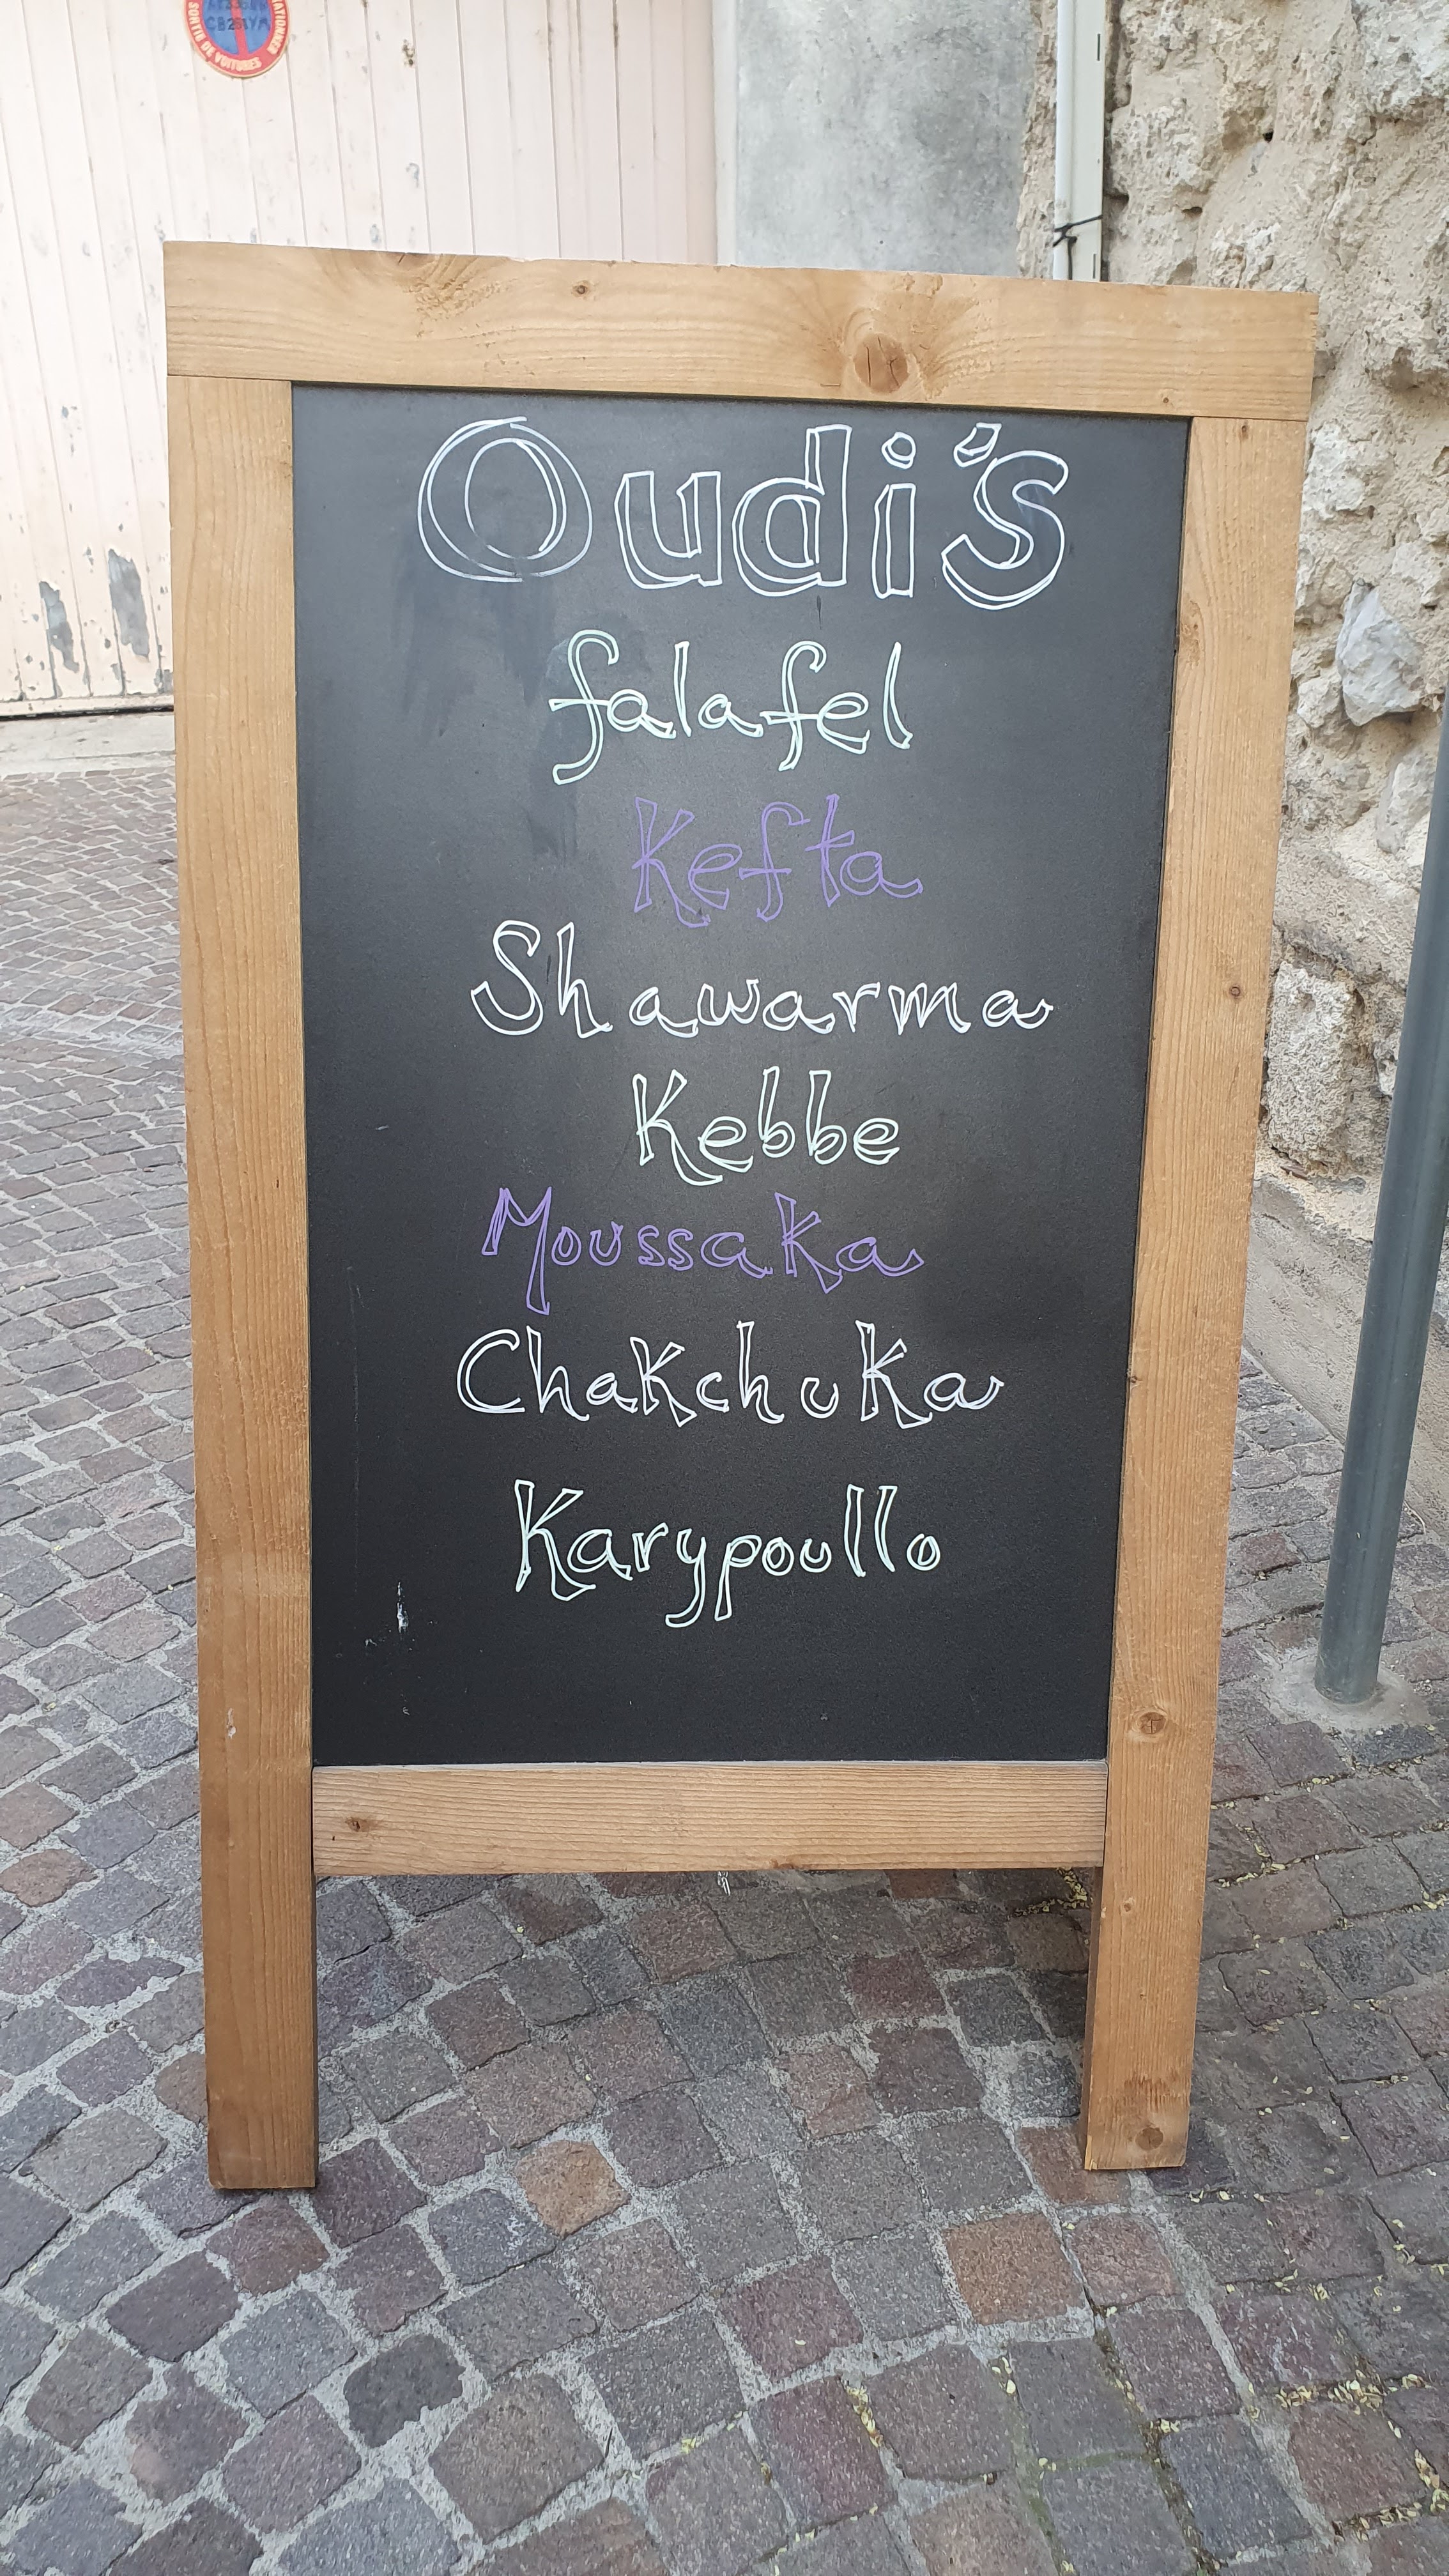 SORTIE DE VOITURES
Oudi's
falafel
Kefta
Shawarma
Kebbe
Moussaka
Chakchuka
Karypoullo